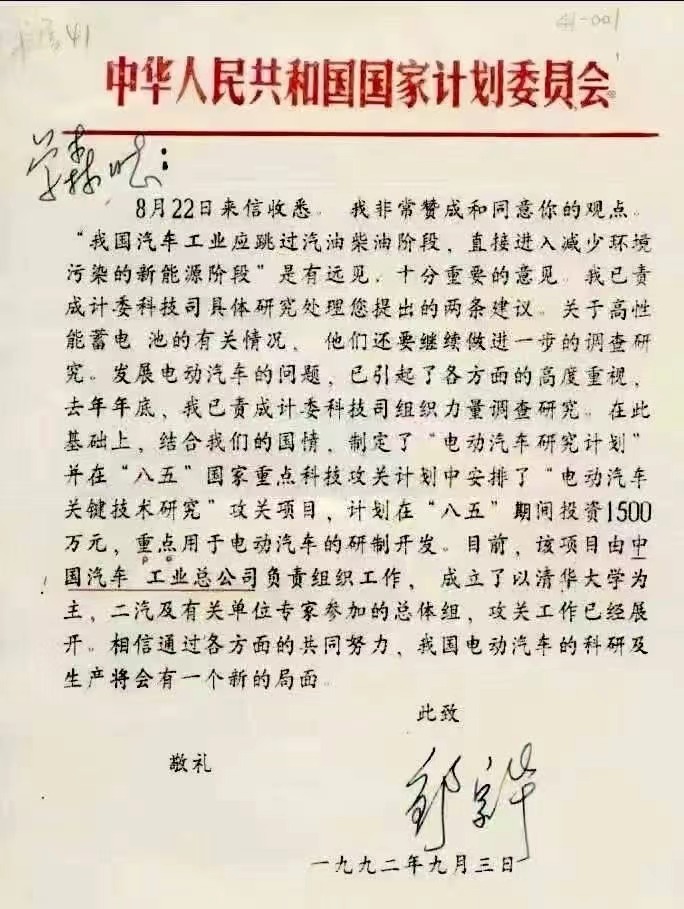 41
41-001
中华人民共和国国家计划委员会
学森:
8月22日来信收悉。我非常赞成和同意你的观点。
“我国汽车工业应跳过汽油柴油阶段,直接进入减少环境
污染的新能源阶段”是有远见、十分重要的意见。我已责
成计委科技司具体研究处理您提出的两条建议。关于高性
能蓄电 池的有关情况, 他们还要继续做进一步的调查研
究。发展电动汽车的问题,已引起了各方面的高度重视,
去年年底,我已责成计委科技司组织力量调查研究。在此
基础上,结合我们的国情,制定了“电动汽车研究计划”
并在“八五”国家重点科技攻关计划中安排了“电动汽车
关键技术研究”攻关项目,计划在“八五”期间投资1500
万元,重点用于电动汽车的研制开发。目前,该项目由中
国汽车 工业总公司负责组织工作, 成立了以清华大学为
主,二汽及有关单位专家参加的总体组,攻关工作已经展
开。相信通过各方面的共同努力,我国电动汽车的科研及
生产将会有一个新的局面。
此致
敬礼
邹家华
一九九二年九月三日